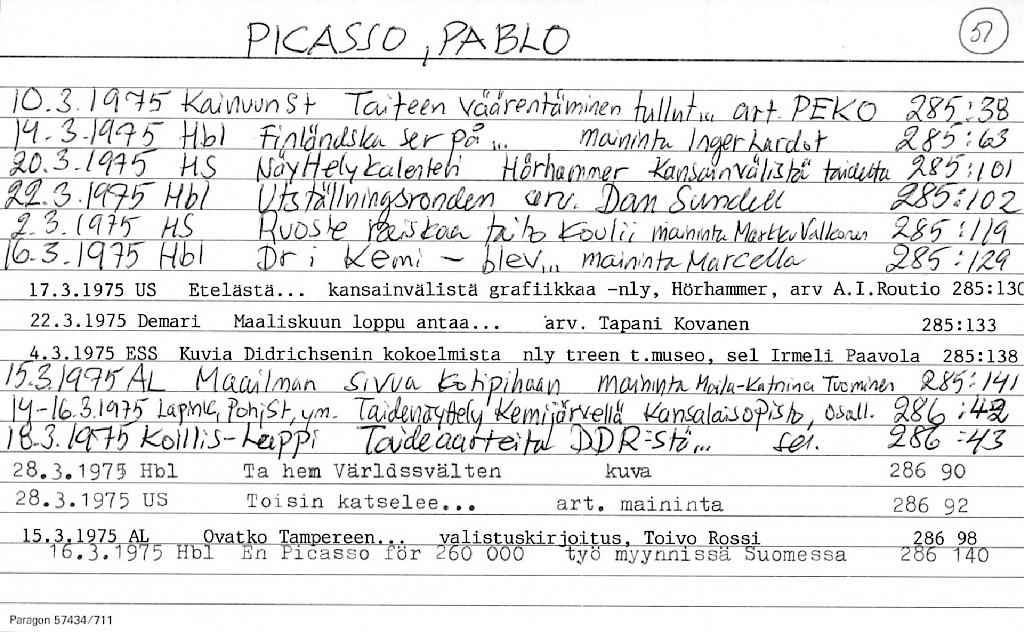 PICASSO, PABLO 51
10.3.1975 KainuunSt Taiteen väärentäminen tullut... art. PEKO 285:38
14.3.1975 Hbl Finländska ser på... maininta Inger Lardot 285:63
20.3.1975 HS Näyttelykalenteri Hörhammer Kansainvälistä taidetta 285:101
22.3.1975 Hbl Utställningsronden arv. Dan Sundell 285:102
2.3.1975 HS Ruoste raiskaa taito koulii maininta Markku Valkonen 285:119
16.3.1975 Hbl Dr i Kemi - blev... maininta Marcella 285:129
17.3.1975 US Etelästä... kansainvälistä grafiikkaa -nly, Hörhammer, arv A.I.Routio 285:130
22.3.1975 Demari Maaliskuun loppu antaa... arv. Tapani Kovanen 285:133
4.3.1975 ESS Kuvia Didrichsenin kokoelmista nly treen t.museo, sel Irmeli Paavola 285:138
15.3.1975 AL Maailman sivua kotipihaan maininta Maila-Katriina Tuominen 285:141
14-16.3.1975 LapinK, PohjSt, ym. Taidenäyttely Kemijärvellä kansalaisopisto, osall. 286:42
18.3.1975 Koillis-Lappi Taideaarteita DDR:stä... sel. 286:43
28.3.1975 Hbl Ta hem Världssvälten kuva 286 90
28.3.1975 US Toisin katselee... art. maininta 286 92
15.3.1975 AL Ovatko Tampereen... valistuskirjoitus, Toivo Rossi 286 98
16.3.1975 Hbl En Picasso för 260 000 työ myynnissä Suomessa 286 140
Paragon 57434/711